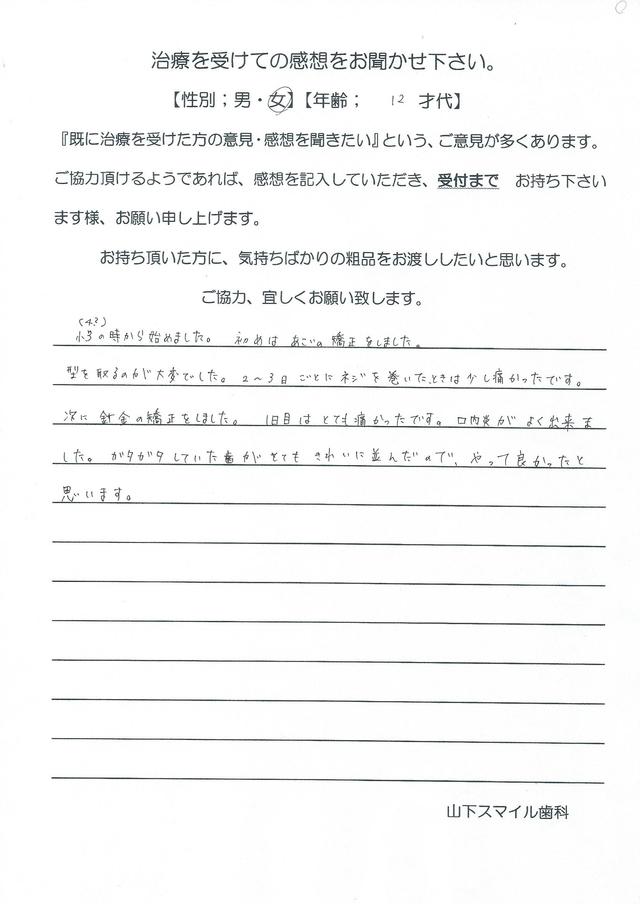 治療を受けての感想をお聞かせ下さい。
【性別；男・女】【年齢；　12　才代】
『既に治療を受けた方の意見・感想を聞きたい』という、ご意見が多くあります。
ご協力頂けるようであれば、感想を記入していただき、受付まで　お持ち下さい
ます様、お願い申し上げます。
お持ち頂いた方に、気持ちばかりの粗品をお渡ししたいと思います。
ご協力、宜しくお願い致します。
の時から始めました。　初めは　あごの矯正をしました。
型を取るのが大変でした。2～3日ごとにネジを巻いたときは少し痛かったです。
次に針金の矯正をしました。　1日目はとても痛かったです。口内炎がよく出来ま
した。ガタガタしていた歯がとてもきれいに並んだので、やって良かったと
思います。
山下スマイル歯科